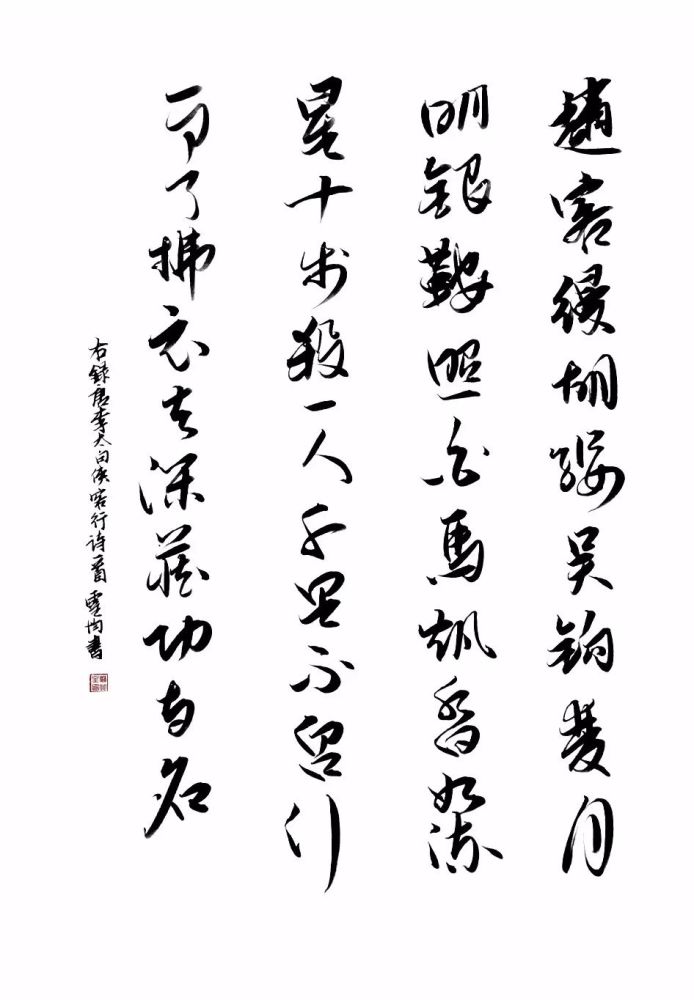 趙客縵胡纓吳鉤雙月
明銀鞍照白馬颯沓如流
星十步殺一人千里不留行
事了拂衣去深藏功與名
右錄唐李太白俠客行诗一首 靈均書